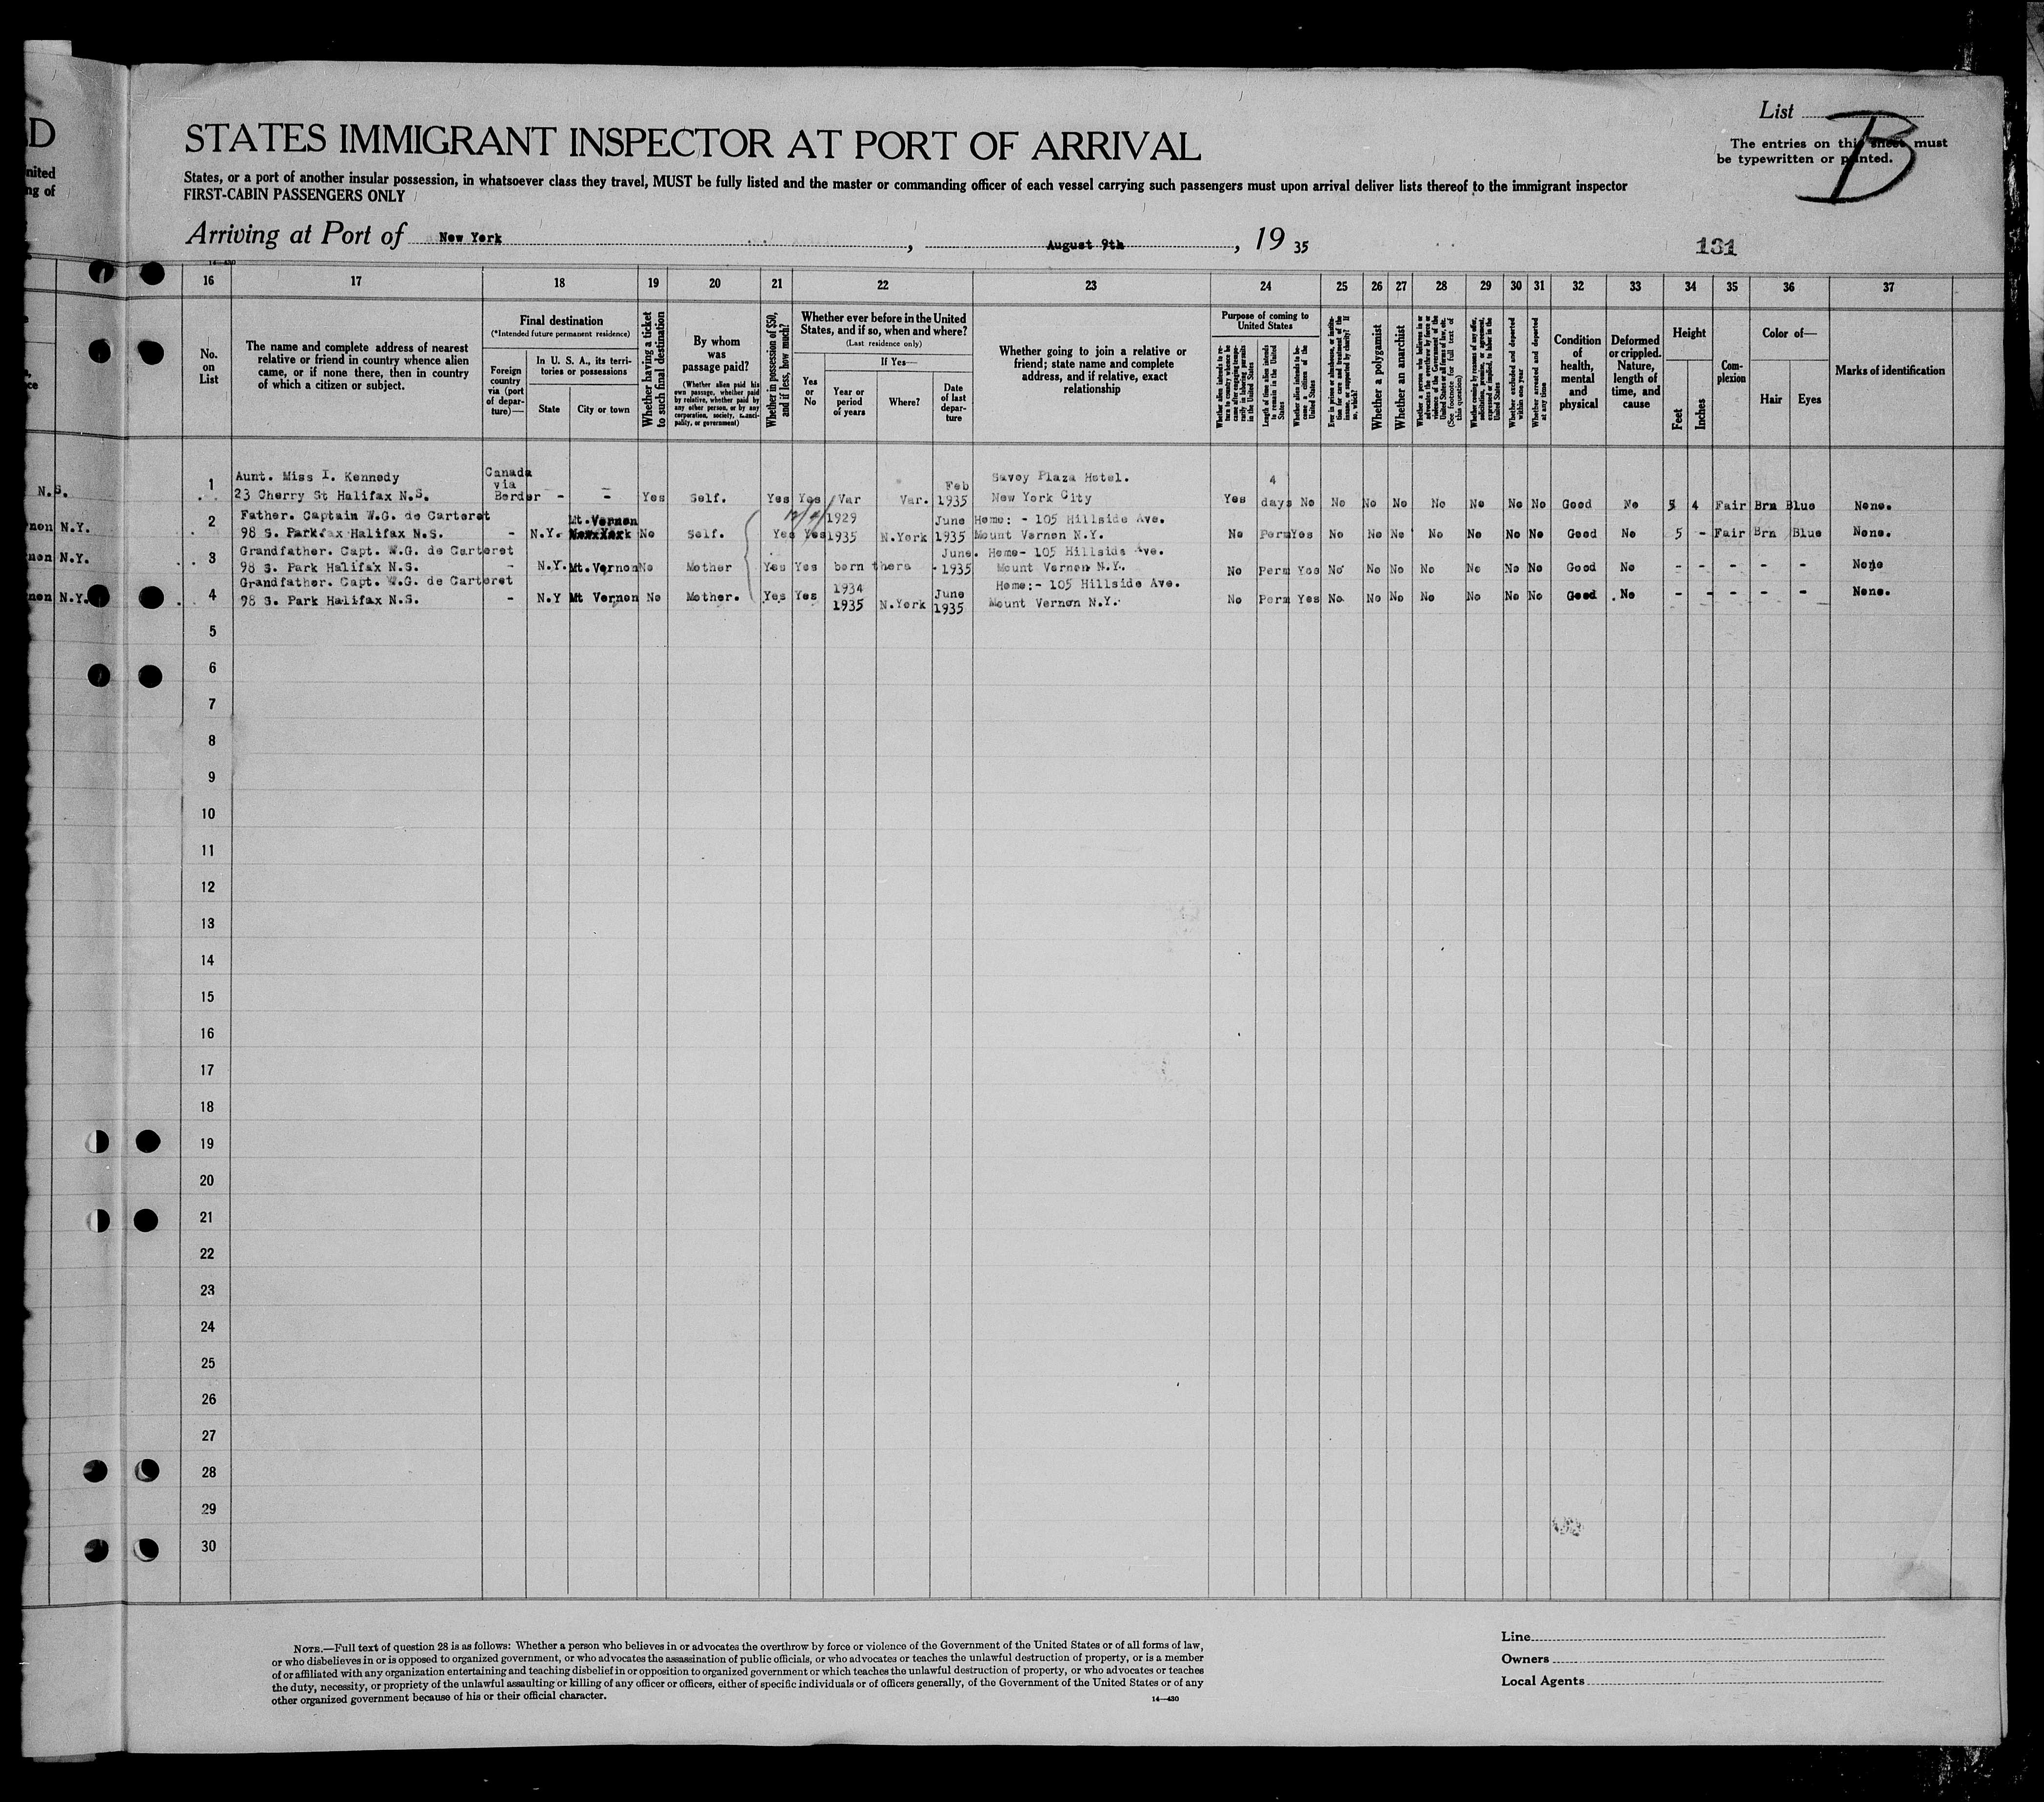 D
nited
ng of
N.S.
non N.Y.
non N.Y.
non N.Y.
List
B
STATES IMMIGRANT INSPECTOR AT PORT OF ARRIVAL
The entries on this sheet must
be typewritten or printed.
States, or a port of another insular possession, in whatsoever class they travel, MUST be fully listed and the master or commanding officer of each vessel carrying such passengers must upon arrival deliver lists thereof to the immigrant inspector
FIRST-CABIN PASSENGERS ONLY
Arriving at Port of New York, August 9th, 19 35
131
14—430
16 17 18 19 20 21 22 23 24 25 26 27 28 29 30 31 32 33 34 35 36 37
No.
on
List
The name and complete address of nearest
relative or friend in country whence alien
came, or if none there, then in country
of which a citizen or subject.
Final destination
(*Intended future permanent residence)
Foreign
country
via (port
of depar-
ture)—
In U. S. A., its terri-
tories or possessions
State
City or town
Whether having a ticket
to such final destination
By whom
was
passage paid?
(Whether alien paid his
own passage, whether paid
by relative, whether paid by
any other person, or by any
corporation, society, munici-
pality, or government)
Whether in possession of $50,
and if less, how much?
Whether ever before in the United
States, and if so, when and where?
(Last residence only)
Yes
or
No
If Yes—
Year or
period
of years
Where?
Date
of last
depar-
ture
Whether going to join a relative or
friend; state name and complete
address, and if relative, exact
relationship
Purpose of coming to
United States
Whether alien intends to re-
turn to country whence he
came after engaging tempo-
rarily in laboring pursuits
in the United States
Length of time alien intends
to remain in the United
States
Whether alien intends to be-
come a citizen of the
United States
Ever in prison or almshouse, or institu-
tion for care and treatment of the
insane, or supported by charity? If
so, which?
Whether a polygamist
Whether an anarchist
Whether a person who believes in or
advocates the overthrow by force or
violence of the Government of the
United States or all forms of law, etc.
(See footnote for full text of
this question)
Whether coming by reason of any offer,
solicitation, promise, or agreement,
expressed or implied, to labor in the
United States
Whether excluded and deported
within one year
Whether arrested and deported
at any time
Condition
of
health,
mental
and
physical
Deformed
or crippled.
Nature,
length of
time, and
cause
Height
Feet
Inches
Com-
plexion
Color of—
Hair
Eyes
Marks of identification
1 Aunt. Miss I. Kennedy Canada via Border - - Yes Self. Yes Yes Var Var. Feb 1935 Savoy Plaza Hotel. Yes 4 days No No No No No No No No Good No 5 4 Fair Brn Blue None.
23 Cherry St Halifax N.S. New York City
2 Father. Captain W.G. de Carteret - N.Y. Mt. Vernon No Self. Yes Yes 1929 1935 N.York June 1935 Home: - 105 Hillside Ave. No Perm Yes No No No No No No No Good No 5 - Fair Brn Blue None.
98 S. Park Halifax N.S. Mount Vernon N.Y.
3 Grandfather. Capt. W.G. de Carteret - N.Y. Mt. Vernon No Mother Yes Yes born there June. 1935 Home- 105 Hillside Ave. No Perm Yes No No No No No No No Good No - - - - - None
98 S. Park Halifax N.S. Mount Vernon N.Y.
4 Grandfather. Capt. W.G. de Carteret - N.Y Mt Vernon No Mother. Yes Yes 1934 1935 N.York June 1935 Home:- 105 Hillside Ave. No Perm Yes No No No No No No No Good No - - - - - None.
98 S. Park Halifax N.S. Mount Vernon N.Y.
5
6
7
8
9
10
11
12
13
14
15
16
17
18
19
20
21
22
23
24
25
26
27
28
29
30
NOTE.—Full text of question 28 is as follows: Whether a person who believes in or advocates the overthrow by force or violence of the Government of the United States or of all forms of law,
or who disbelieves in or is opposed to organized government, or who advocates the assassination of public officials, or who advocates or teaches the unlawful destruction of property, or is a member
of or affiliated with any organization entertaining and teaching disbelief in or opposition to organized government or which teaches the unlawful destruction of property, or who advocates or teaches
the duty, necessity, or propriety of the unlawful assaulting or killing of any officer or officers, either of specific individuals or of officers generally, of the Government of the United States or of any
other organized government because of his or their official character.
14—430
Line
Owners
Local Agents